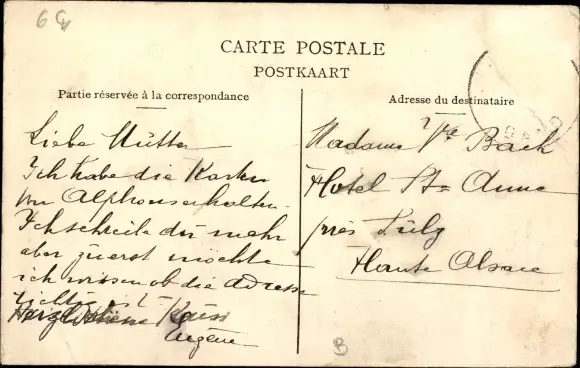 CARTE POSTALE
POSTKAART
Partie réservée à la correspondance
Adresse du destinataire
Liebe Mutter
Ich habe die Karten
von Alphons erhalten.
Ich schreibe dir mehr
aber zuerst möchte
ich wissen ob die Adresse
ist
Eugène
Madame Vve Back
Hotel Ste Anne
près Sulz
Haute Alsace
GAND
B